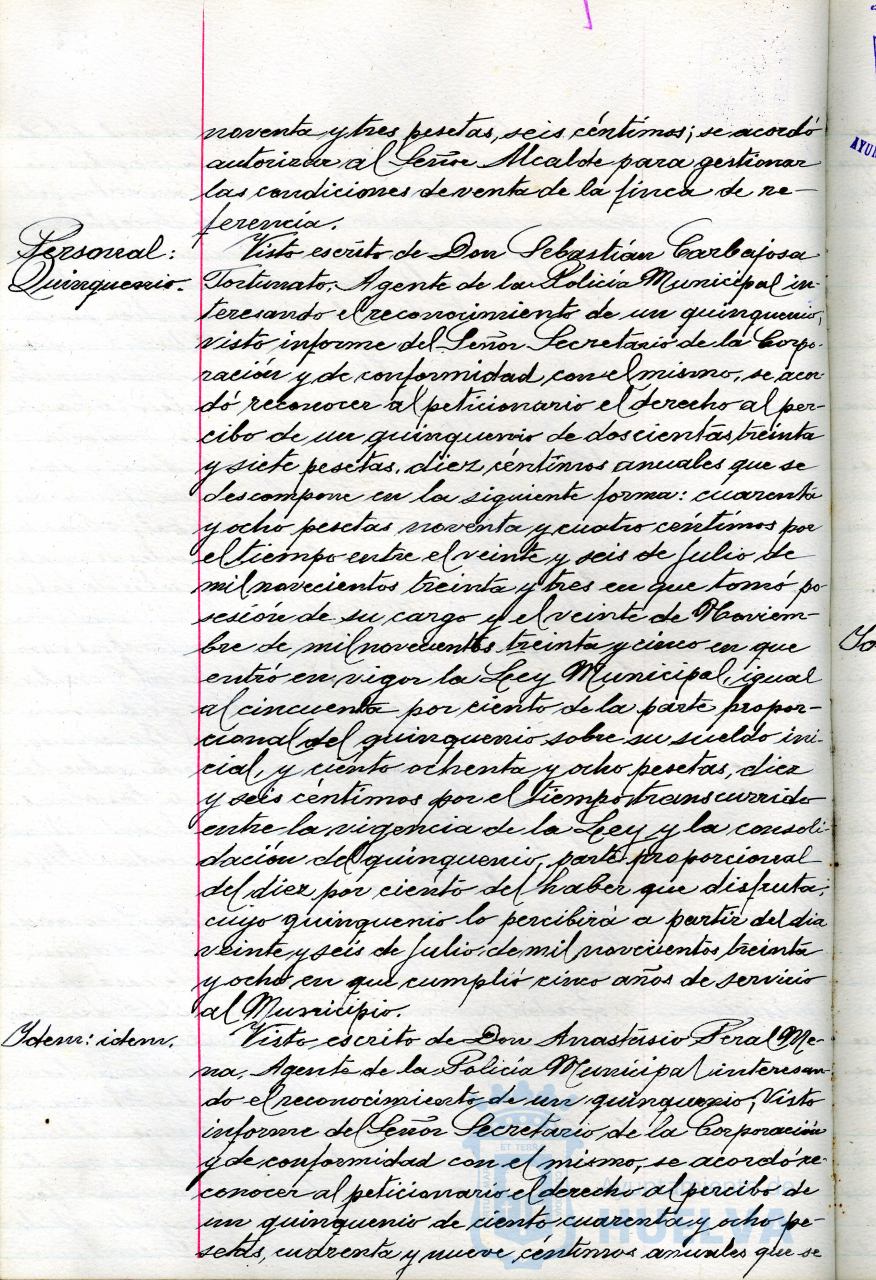 noventa y tres pesetas, seis céntimos; se acordó
autorizar al Señor Alcalde para gestionar
las condiciones de venta de la finca de re-
ferencia.
Personal:
Quinquenio.
Visto escrito de Don Sebastián Carbajosa
Fortunato, Agente de la Policía Municipal in-
teresando el reconocimiento de un quinquenio,
visto informe del Señor Secretario de la Corpo-
ración y de conformidad con el mismo, se acor-
dó reconocer al peticionario el derecho al per-
cibo de un quinquenio de doscientas treinta
y siete pesetas, diez céntimos anuales que se
descompone en la siguiente forma: cuarenta
y ocho pesetas noventa y cuatro céntimos por
el tiempo entre el veinte y seis de Julio de
mil novecientos treinta y tres en que tomó po
sesión de su cargo y el veinte de Noviem-
bre de mil novecientos treinta y cinco en que
entró en vigor la Ley Municipal, igual
al cincuenta por ciento de la parte propor-
cional del quinquenio sobre su sueldo ini-
cial, y ciento ochenta y ocho pesetas, diez
y seis céntimos por el tiempo transcurrido
entre la vigencia de la Ley y la consoli-
dación del quinquenio, parte proporcional
del diez por ciento del haber que disfruta,
cuyo quinquenio lo percibirá a partir del dia
veinte y seis de Julio de mil novecientos treinta
y ocho, en que cumplió cinco años de servicio
al Municipio.
Idem: idem.
Visto escrito de Don Anastasio Peral Me-
na, Agente de la Policía Municipal interesan-
do el reconocimiento de un quinquenio; Visto
informe del Señor Secretario de la Corporación
y de conformidad con el mismo, se acordó re-
conocer al peticionario el derecho al percibo de
un quinquenio de ciento cuarenta y ocho pe-
setas, cuarenta y nueve céntimos anuales que se
Ayuntamiento de
HUELVA